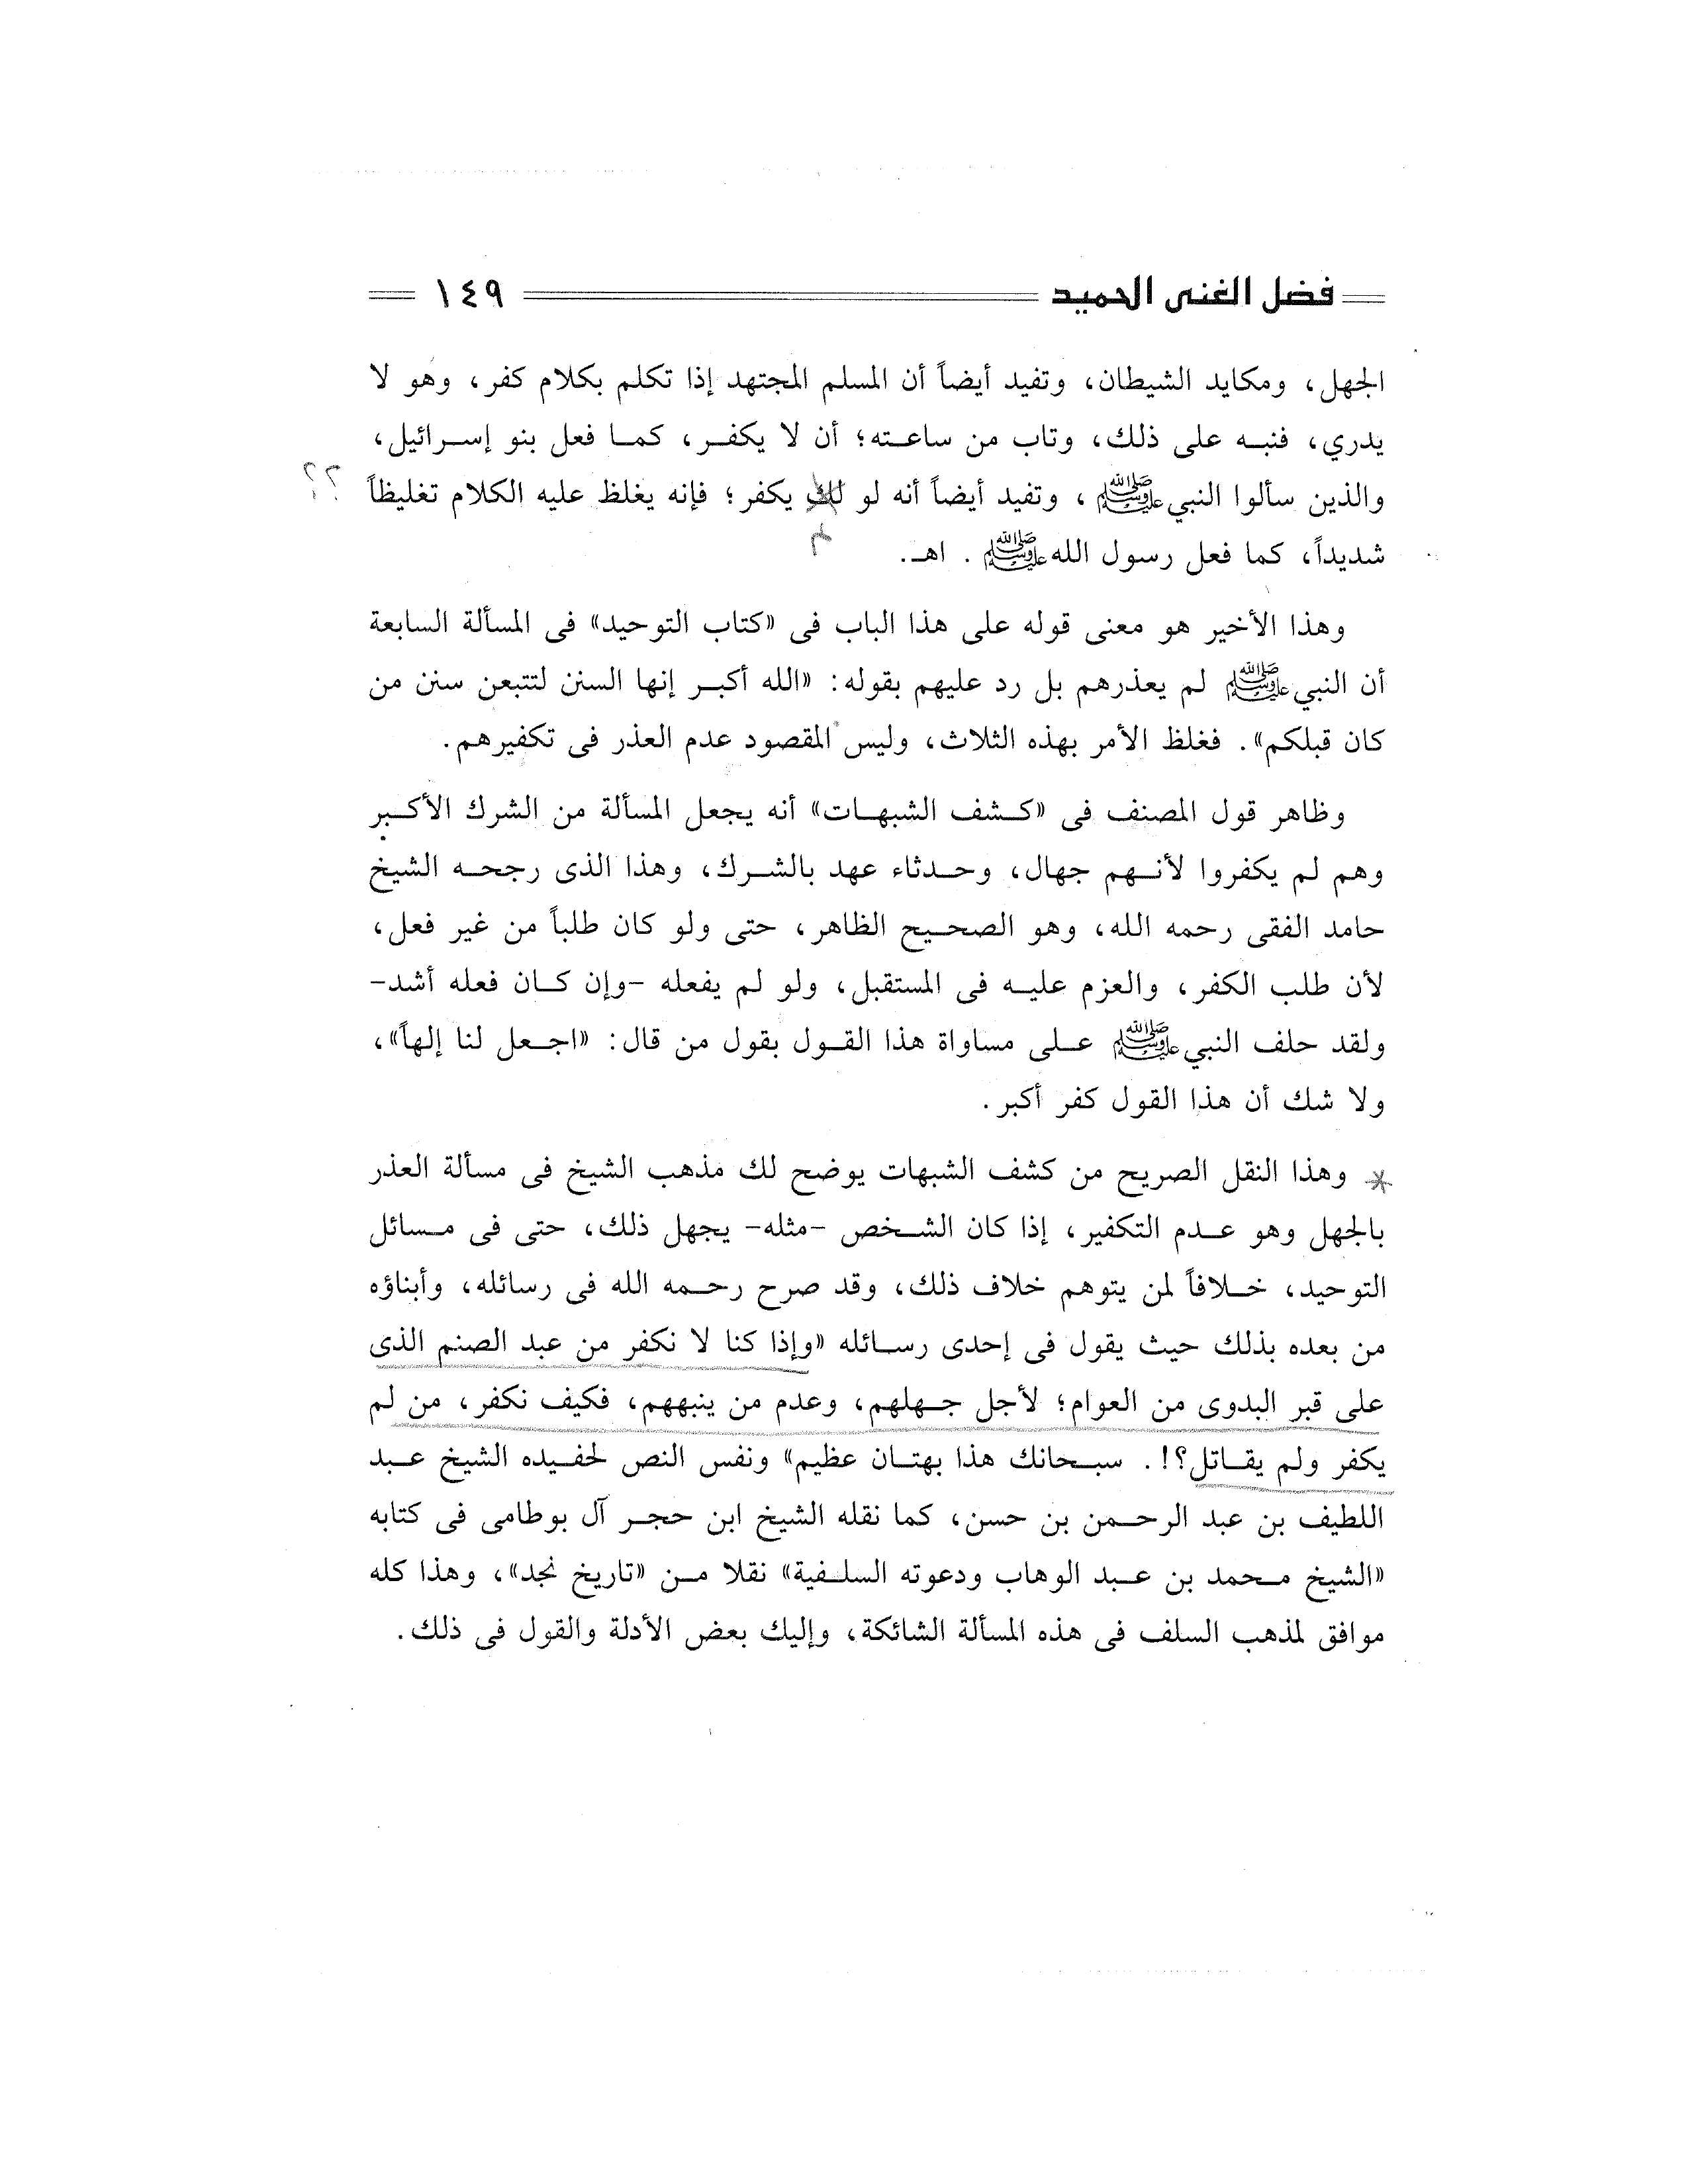 فضل الغنى الحميد ١٤٩
الجهل، ومكايد الشيطان، وتفيد أيضاً أن المسلم المجتهد إذا تكلم بكلام كفر، وهو لا
يدري، فنبه على ذلك، وتاب من ساعته؛ أن لا يكفر، كما فعل بنو إسرائيل،
والذين سألوا النبي ﷺ، وتفيد أيضاً أنه لو يكفر؛ فإنه يغلظ عليه الكلام تغليظاً ؟؟
م
شديداً، كما فعل رسول الله ﷺ. اهـ.
وهذا الأخير هو معنى قوله على هذا الباب فى «كتاب التوحيد» فى المسألة السابعة
أن النبي ﷺ لم يعذرهم بل رد عليهم بقوله: «الله أكبر إنها السنن لتتبعن سنن من
كان قبلكم». فغلظ الأمر بهذه الثلاث، وليس المقصود عدم العذر فى تكفيرهم.
وظاهر قول المصنف فى «كشف الشبهات» أنه يجعل المسألة من الشرك الأكبر
وهم لم يكفروا لأنهم جهال، وحدثاء عهد بالشرك، وهذا الذى رجحه الشيخ
حامد الفقى رحمه الله، وهو الصحيح الظاهر، حتى ولو كان طلباً من غير فعل،
لأن طلب الكفر، والعزم عليه فى المستقبل، ولو لم يفعله -وإن كان فعله أشد-
ولقد حلف النبي ﷺ على مساواة هذا القول بقول من قال: «اجعل لنا إلهاً»،
ولا شك أن هذا القول كفر أكبر.
* وهذا النقل الصريح من كشف الشبهات يوضح لك مذهب الشيخ فى مسألة العذر
بالجهل وهو عدم التكفير، إذا كان الشخص -مثله- يجهل ذلك، حتى فى مسائل
التوحيد، خلافاً لمن يتوهم خلاف ذلك، وقد صرح رحمه الله فى رسائله، وأبناؤه
من بعده بذلك حيث يقول فى إحدى رسائله «وإذا كنا لا نكفر من عبد الصنم الذى
على قبر البدوى من العوام؛ لأجل جهلهم، وعدم من ينبههم، فكيف نكفر، من لم
يكفر ولم يقاتل؟!. سبحانك هذا بهتان عظيم» ونفس النص لحفيده الشيخ عبد
اللطيف بن عبد الرحمن بن حسن، كما نقله الشيخ ابن حجر آل بوطامى فى كتابه
«الشيخ محمد بن عبد الوهاب ودعوته السلفية» نقلا من «تاريخ نجد»، وهذا كله
موافق لمذهب السلف فى هذه المسألة الشائكة، وإليك بعض الأدلة والقول فى ذلك.